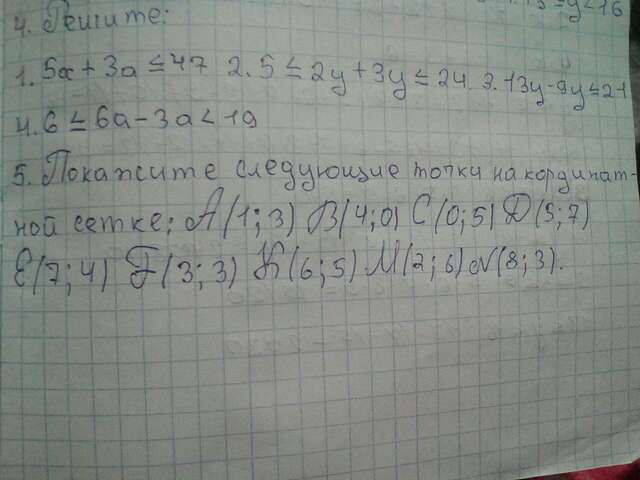 y<16
4. Решите:
1. 5a + 3a ≤ 47 2. 5 ≤ 2y + 3y ≤ 24 3. 13y - 9y ≤ 21
4. 6 ≤ 6a - 3a < 19
5. Покажите следующие точки на кординат-
ной сетке: A(1; 3) B(4; 0) C(0; 5) D(5; 7)
E(7; 4) F(3; 3) K(6; 5) M(2; 6) N(8; 3).